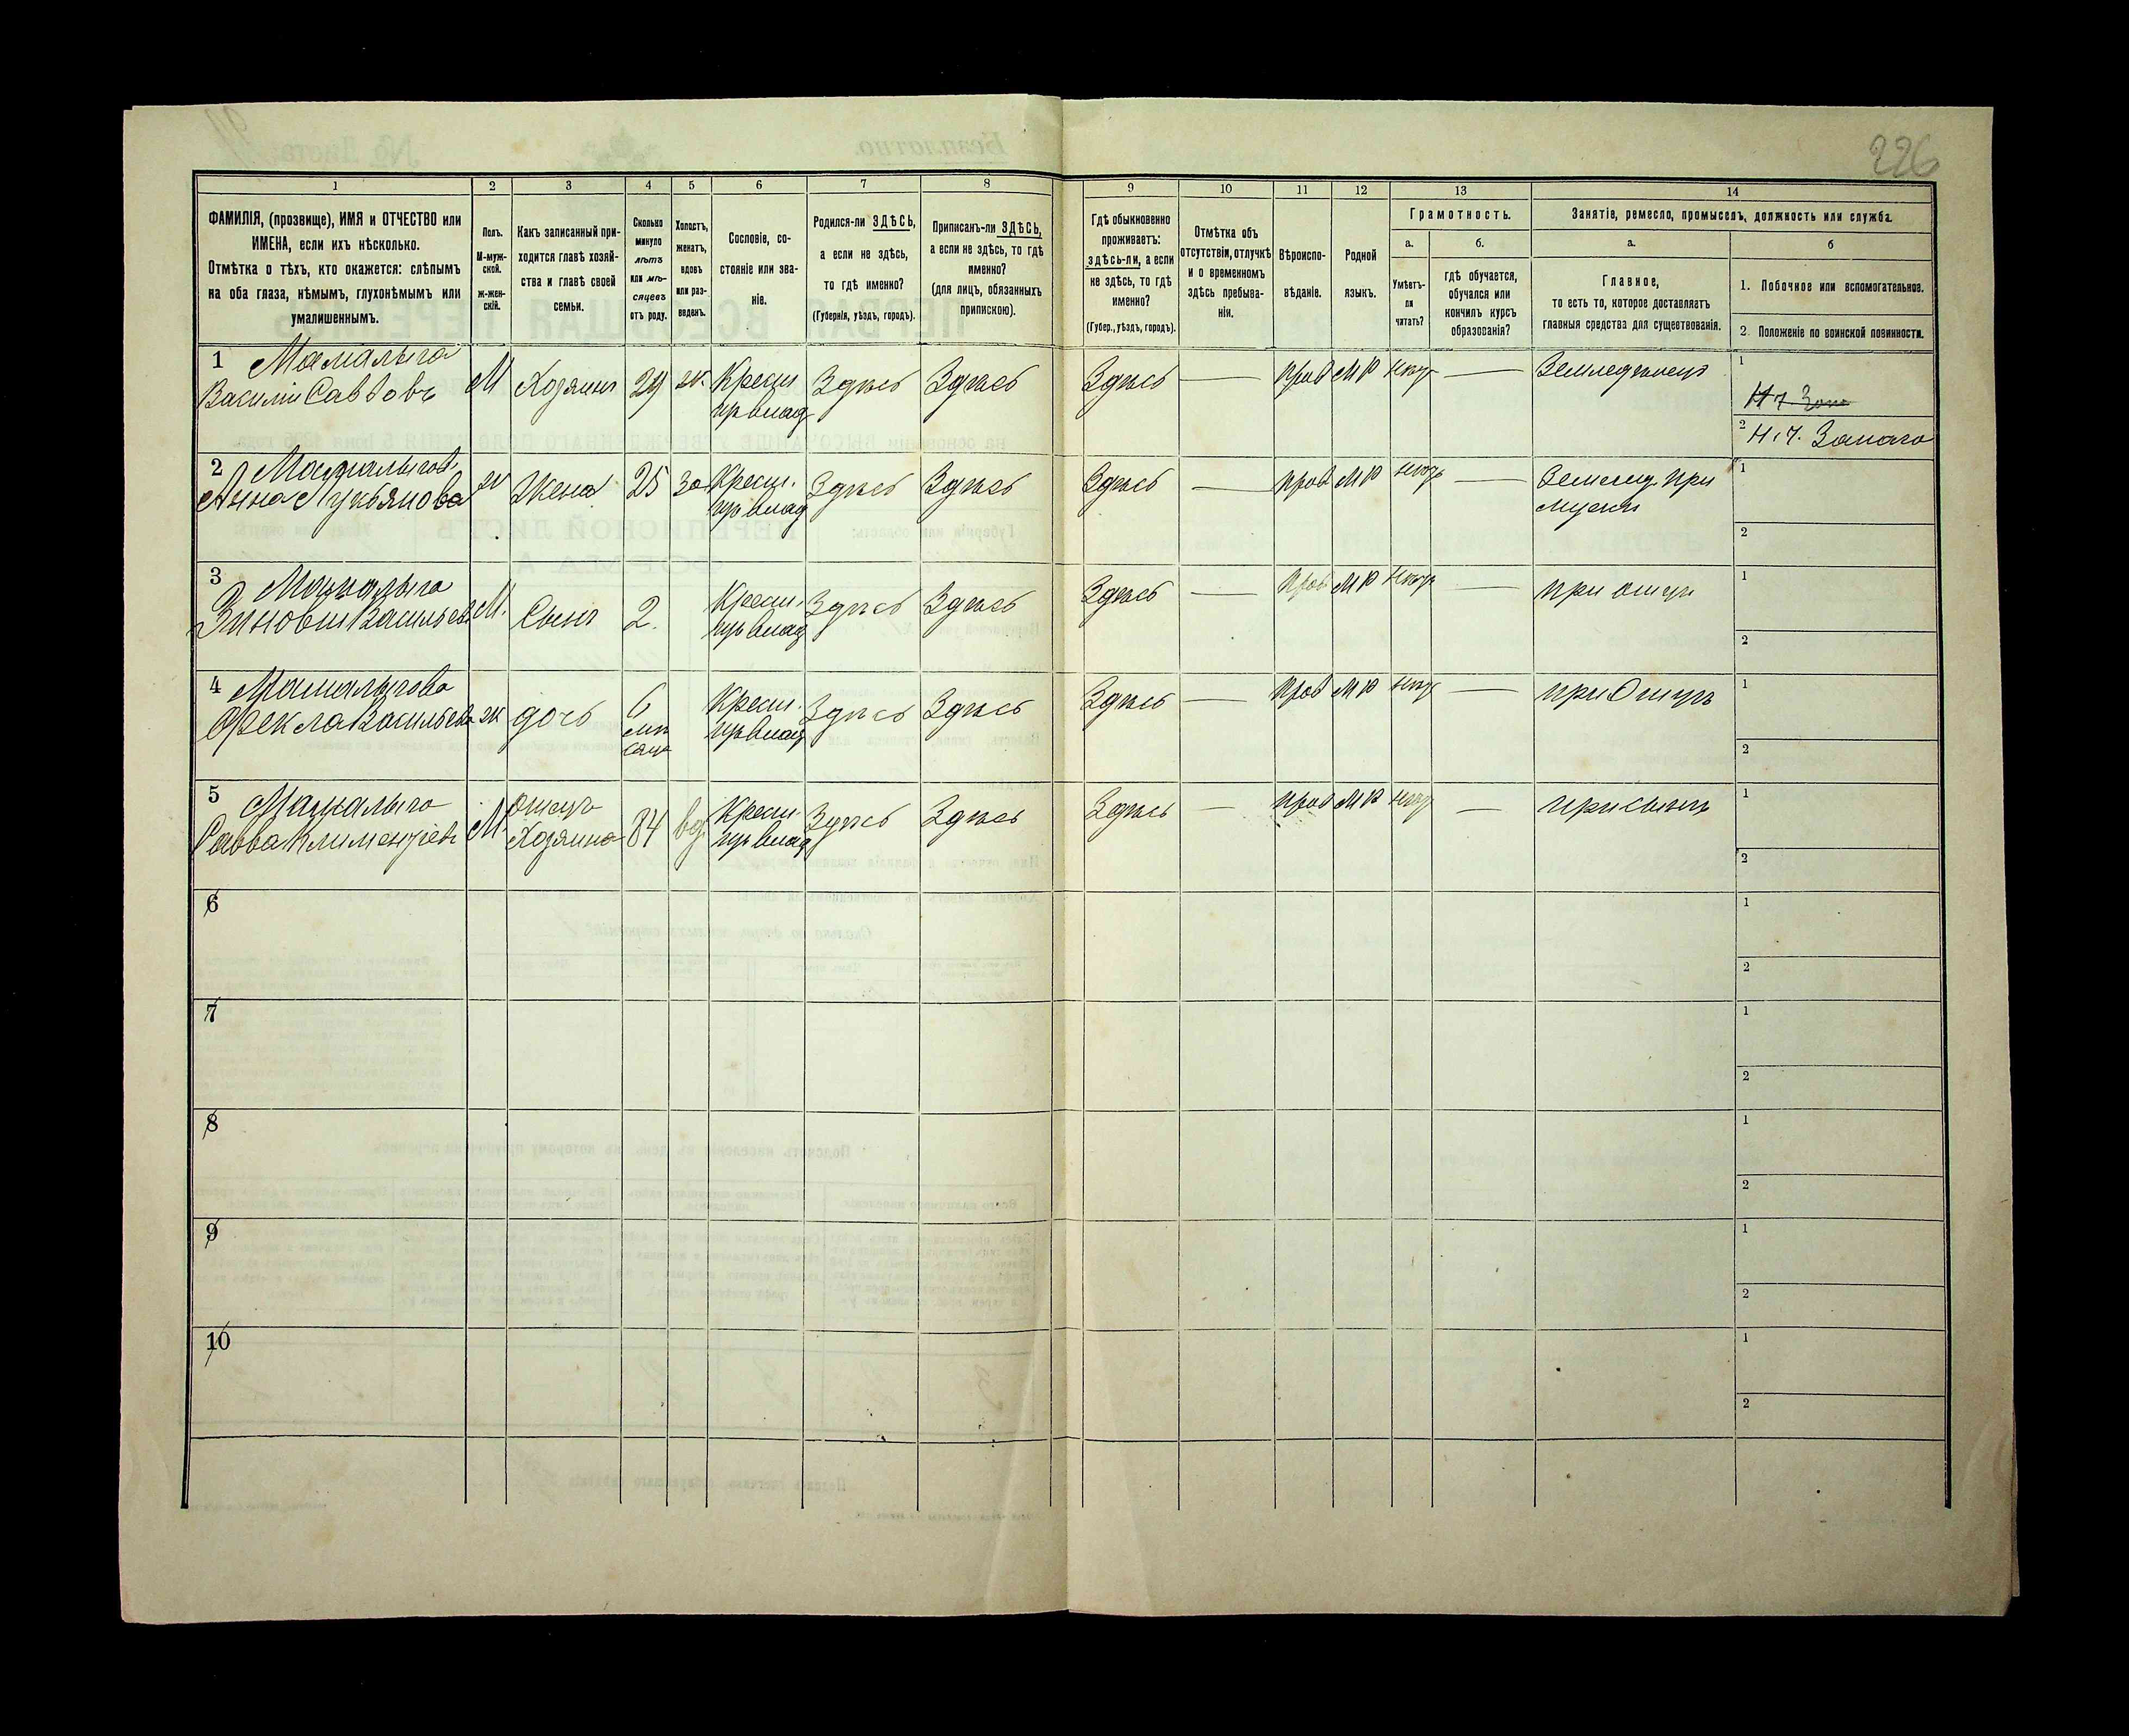 226
1 2 3 4 5 6 7 8 9 10 11 12 13 14
ФАМИЛІЯ, (прозвище), ИМЯ и ОТЧЕСТВО или
ИМЕНА, если ихъ нѣсколько.
Отмѣтка о тѣхъ, кто окажется: слѣпымъ
на оба глаза, нѣмымъ, глухонѣмымъ или
умалишеннымъ.
Полъ.
М-муж-
ской.
ж-жен-
скій.
Какъ записанный при-
ходится главѣ хозяй-
ства и главѣ своей
семьи.
Сколько
минуло
лѣтъ
или мѣ-
сяцевъ
отъ роду.
Холостъ,
женатъ,
вдовъ
или раз-
веденъ.
Сословіе, со-
стояніе или зва-
ніе.
Родился-ли ЗДѢСЬ,
а если не здѣсь,
то гдѣ именно?
(Губернія, уѣздъ, городъ).
Приписанъ-ли ЗДѢСЬ,
а если не здѣсь, то гдѣ
именно?
(для лицъ, обязанныхъ
припискою).
Гдѣ обыкновенно
проживаетъ:
здѣсь-ли, а если
не здѣсь, то гдѣ
именно?
(Губер., уѣздъ, городъ).
Отмѣтка объ
отсутствіи, отлучкѣ
и о временномъ
здѣсь пребыва-
ніи.
Вѣроиспо-
вѣданіе.
Родной
языкъ.
Грамотность.
а.
Умѣетъ-
ли
читать?
б.
гдѣ обучается,
обучался или
кончилъ курсъ
образованія?
Занятіе, ремесло, промыселъ, должность или служба.
а.
Главное,
то есть то, которое доставляетъ
главныя средства для существованія.
б
1. Побочное или вспомогательное.
2. Положеніе по воинской повинности.
1 Мамалыга
Василій Саввовъ
М
Хозяинъ
29
ж.
Крест.
Здѣсь
Здѣсь
Здѣсь
—
прав
МР
—
Земледѣлецъ
1
2
2 Мамалыгова
Анна Лукьянова
ж
Жена
25
За
Крест.
Здѣсь
Здѣсь
Здѣсь
—
прав
МР
—
Землед. при
мужѣ
1
2
3 Мамалыга
Зиновій Васильевъ
М.
Сынъ
2.
Крест.
Здѣсь
Здѣсь
Здѣсь
—
прав
МР
—
при отцѣ
1
2
4 Мамалыгова
Фекла Васильева
ж
дочь
6
мѣ
сяц
Крест.
Здѣсь
Здѣсь
Здѣсь
—
прав
МР
—
при Отцѣ
1
2
5 Мамалыга
Савва Климентіевъ
М.
Отецъ
Хозяина
84
вд.
Крест.
Здѣсь
Здѣсь
Здѣсь
—
прав
МР
—
при сынѣ
1
2
6
1
2
7
1
2
8
1
2
9
1
2
10
1
2